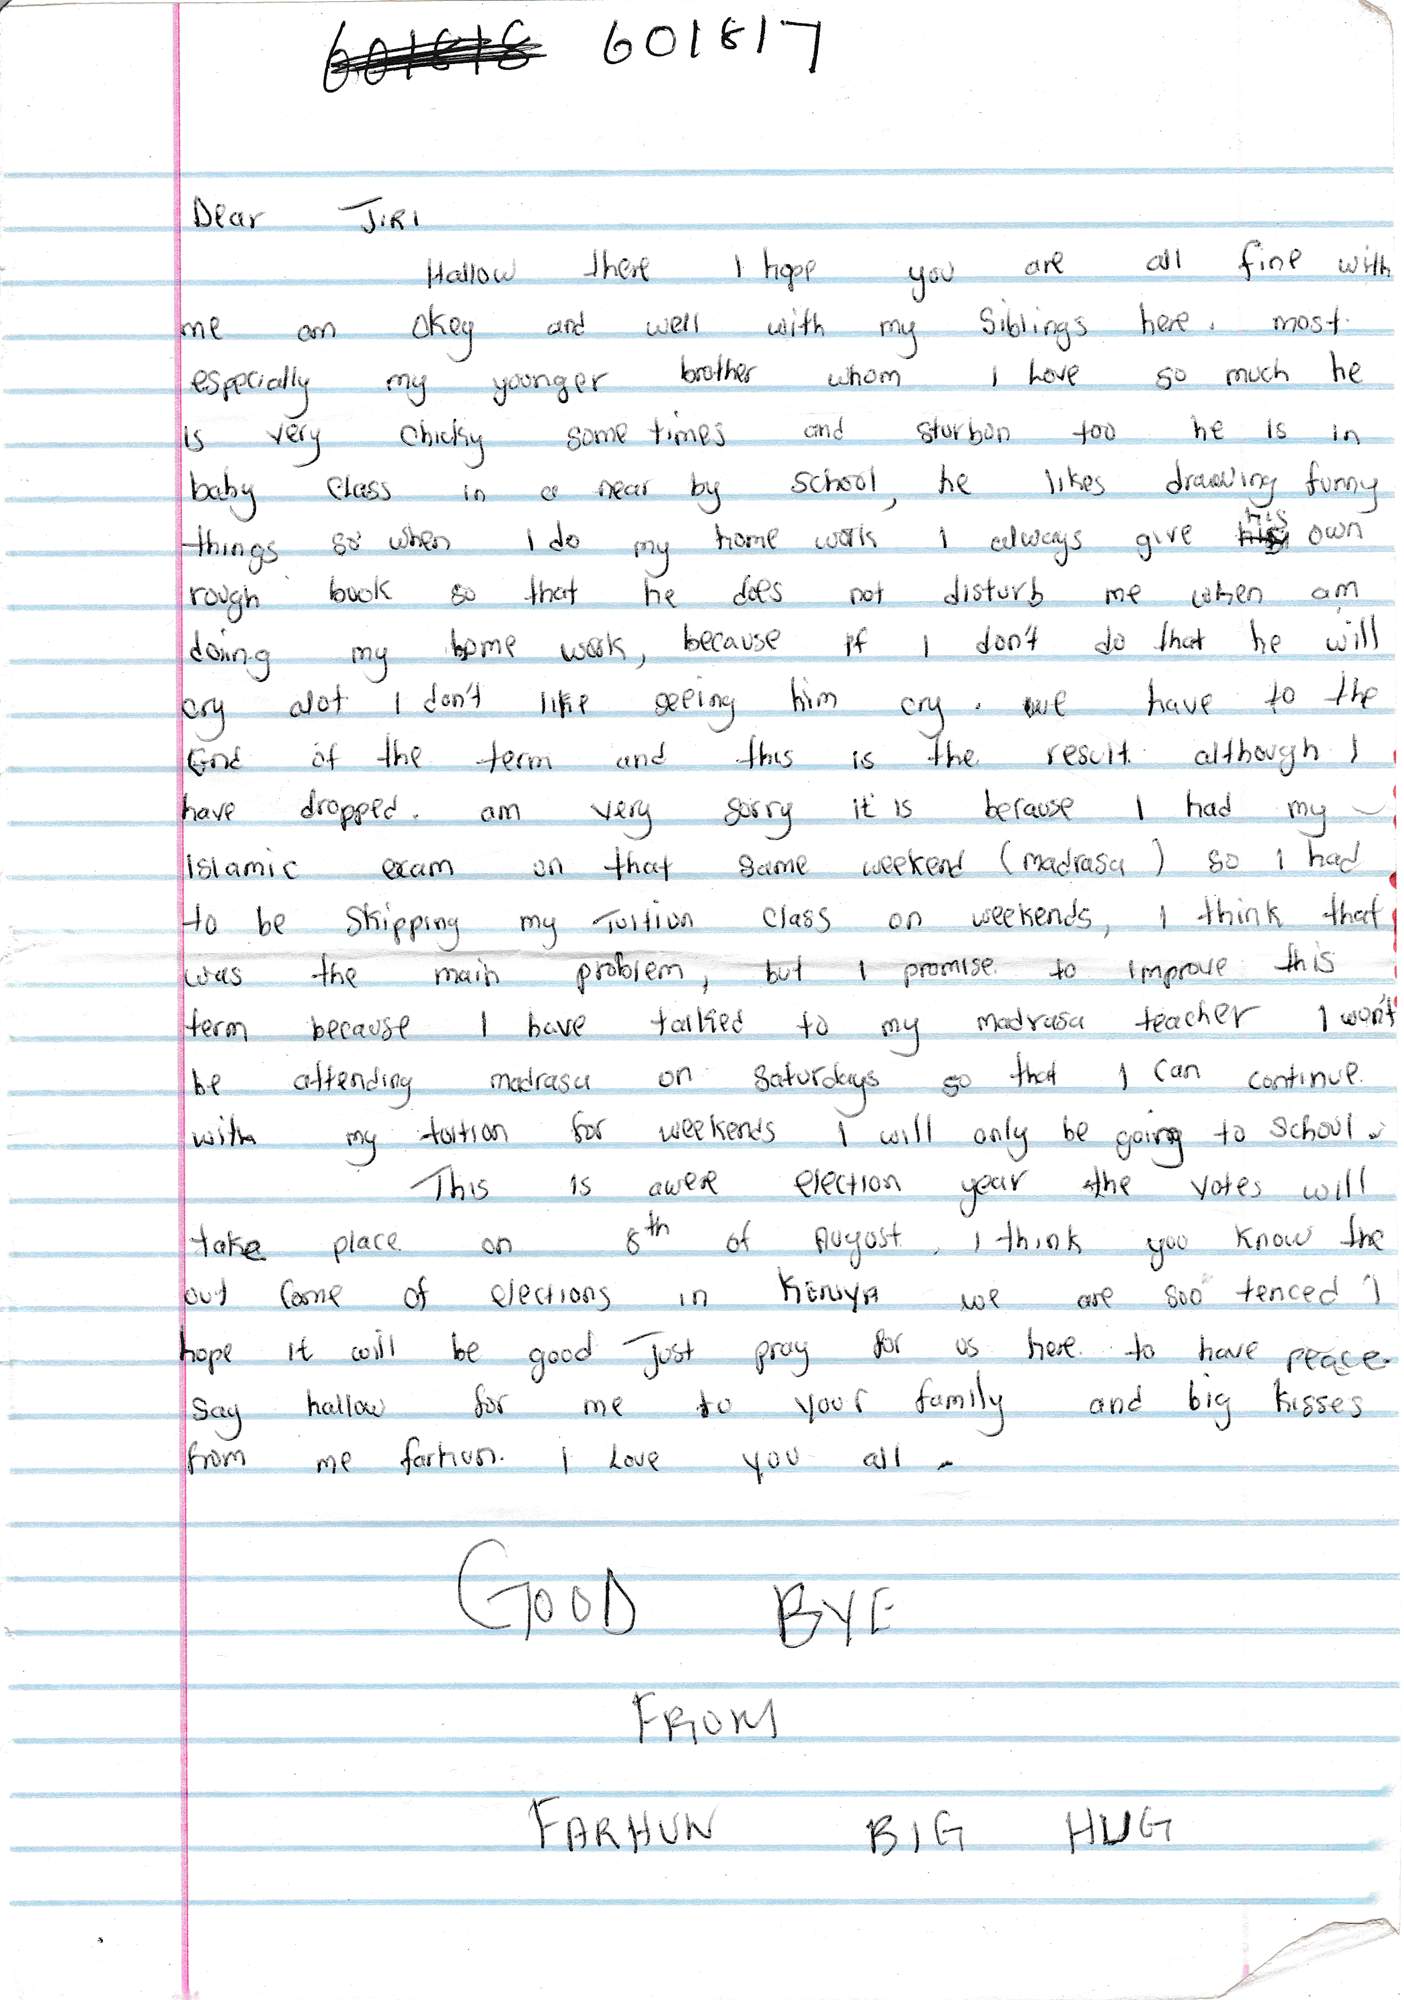 601817
Dear JiRi
Hallow there I hope you are all fine with
me am Okey and well with my Siblings here. most
especially my younger brother whom I Love so much he
is very chicky some times and sturbon too he is in
baby Class in a near by school, he likes drawing funny
things so when I do my home work I always give his own
rough book so that he does not disturb me when am
doing my home work, because if I don't do that he will
cry alot I don't like seeing him cry. we have to the
End of the term and this is the result although I
have dropped. am very sorry it is because I had my
Islamic exam on that same weekend (madrasa) so I had
to be Skipping my Tuition Class on weekends, I think that
was the main problem, but I promise to improve this
term because I have talked to my madrasa teacher I won't
be attending madrasa on Saturdays so that I can continue
with my tuition for weekends I will only be going to School.
This is awere election year the votes will
take place on 8th of August, I think you know the
out Come of elections in KENYA we are soo tenced I
hope it will be good Just pray for us here to have peace.
Say hallow for me to your family and big kisses
from me farhun. I Love you all.
GOOD BYE
FROM
FARHUN BIG HUG